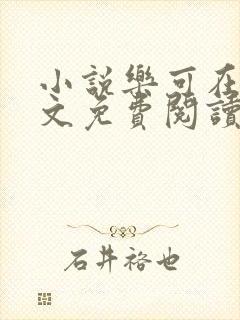 小說樂可在
文免費閱讀
石井裕也